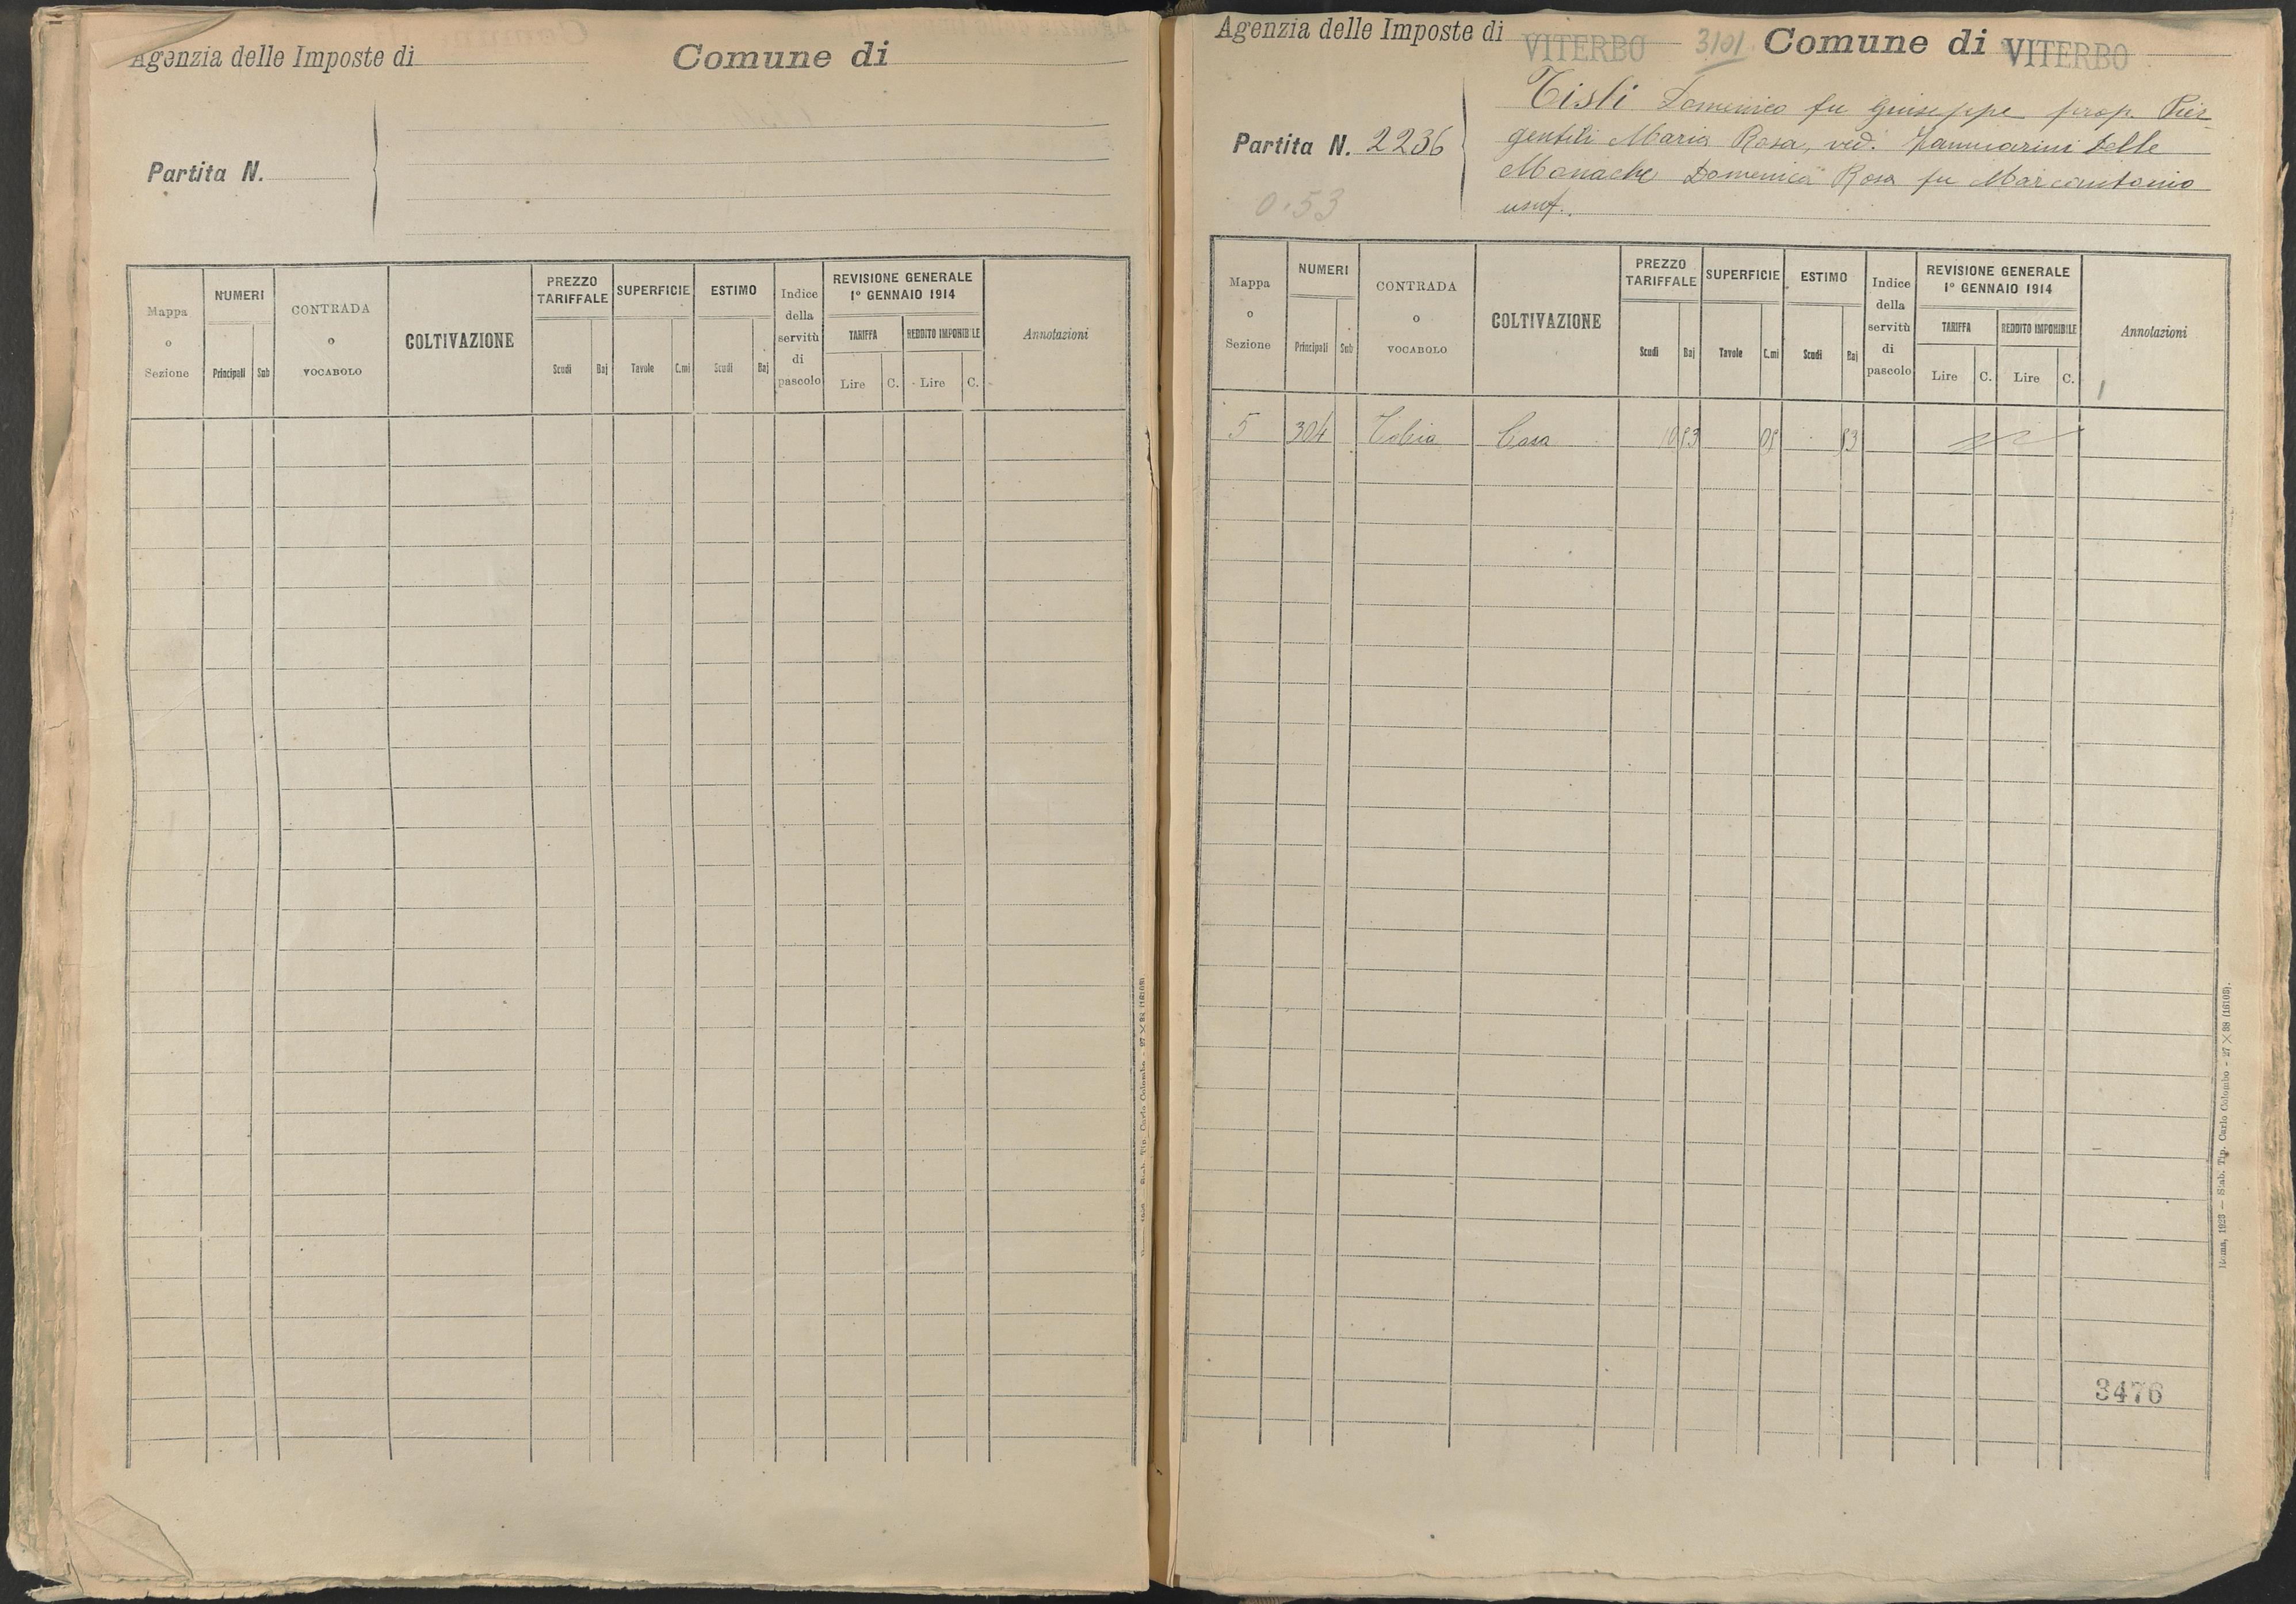 Agenzia delle Imposte di
Comune di
Partita N.
Mappa o Sezione
NUMERI
Principali
Sub
CONTRADA o VOCABOLO
COLTIVAZIONE
PREZZO TARIFFALE
Scudi
Baj
SUPERFICIE
Tavole
C.mi
ESTIMO
Scudi
Baj
Indice della servitù di pascolo
REVISIONE GENERALE
1° GENNAIO 1914
TARIFFA
REDDITO IMPONIBILE
Lire
C.
Lire
C.
Annotazioni
Agenzia delle Imposte di VITERBO
3101
Comune di VITERBO
Partita N. 2236
0.53
Tisli Domenico fu Giuseppe prop. Pier
gentili Maria Rosa, ved. Jannuarini Delle
Monache Domenica Rosa fu Marcantonio
usuf.
Mappa o Sezione
NUMERI
Principali
Sub
CONTRADA o VOCABOLO
COLTIVAZIONE
PREZZO TARIFFALE
Scudi
Baj
SUPERFICIE
Tavole
C.mi
ESTIMO
Scudi
Baj
Indice della servitù di pascolo
REVISIONE GENERALE
1° GENNAIO 1914
TARIFFA
REDDITO IMPONIBILE
Lire
C.
Lire
C.
Annotazioni
5 304 Tobia Casa
3476
Roma, 1923 — Stab. Tip. Carlo Colombo - 27 × 38 (16103).